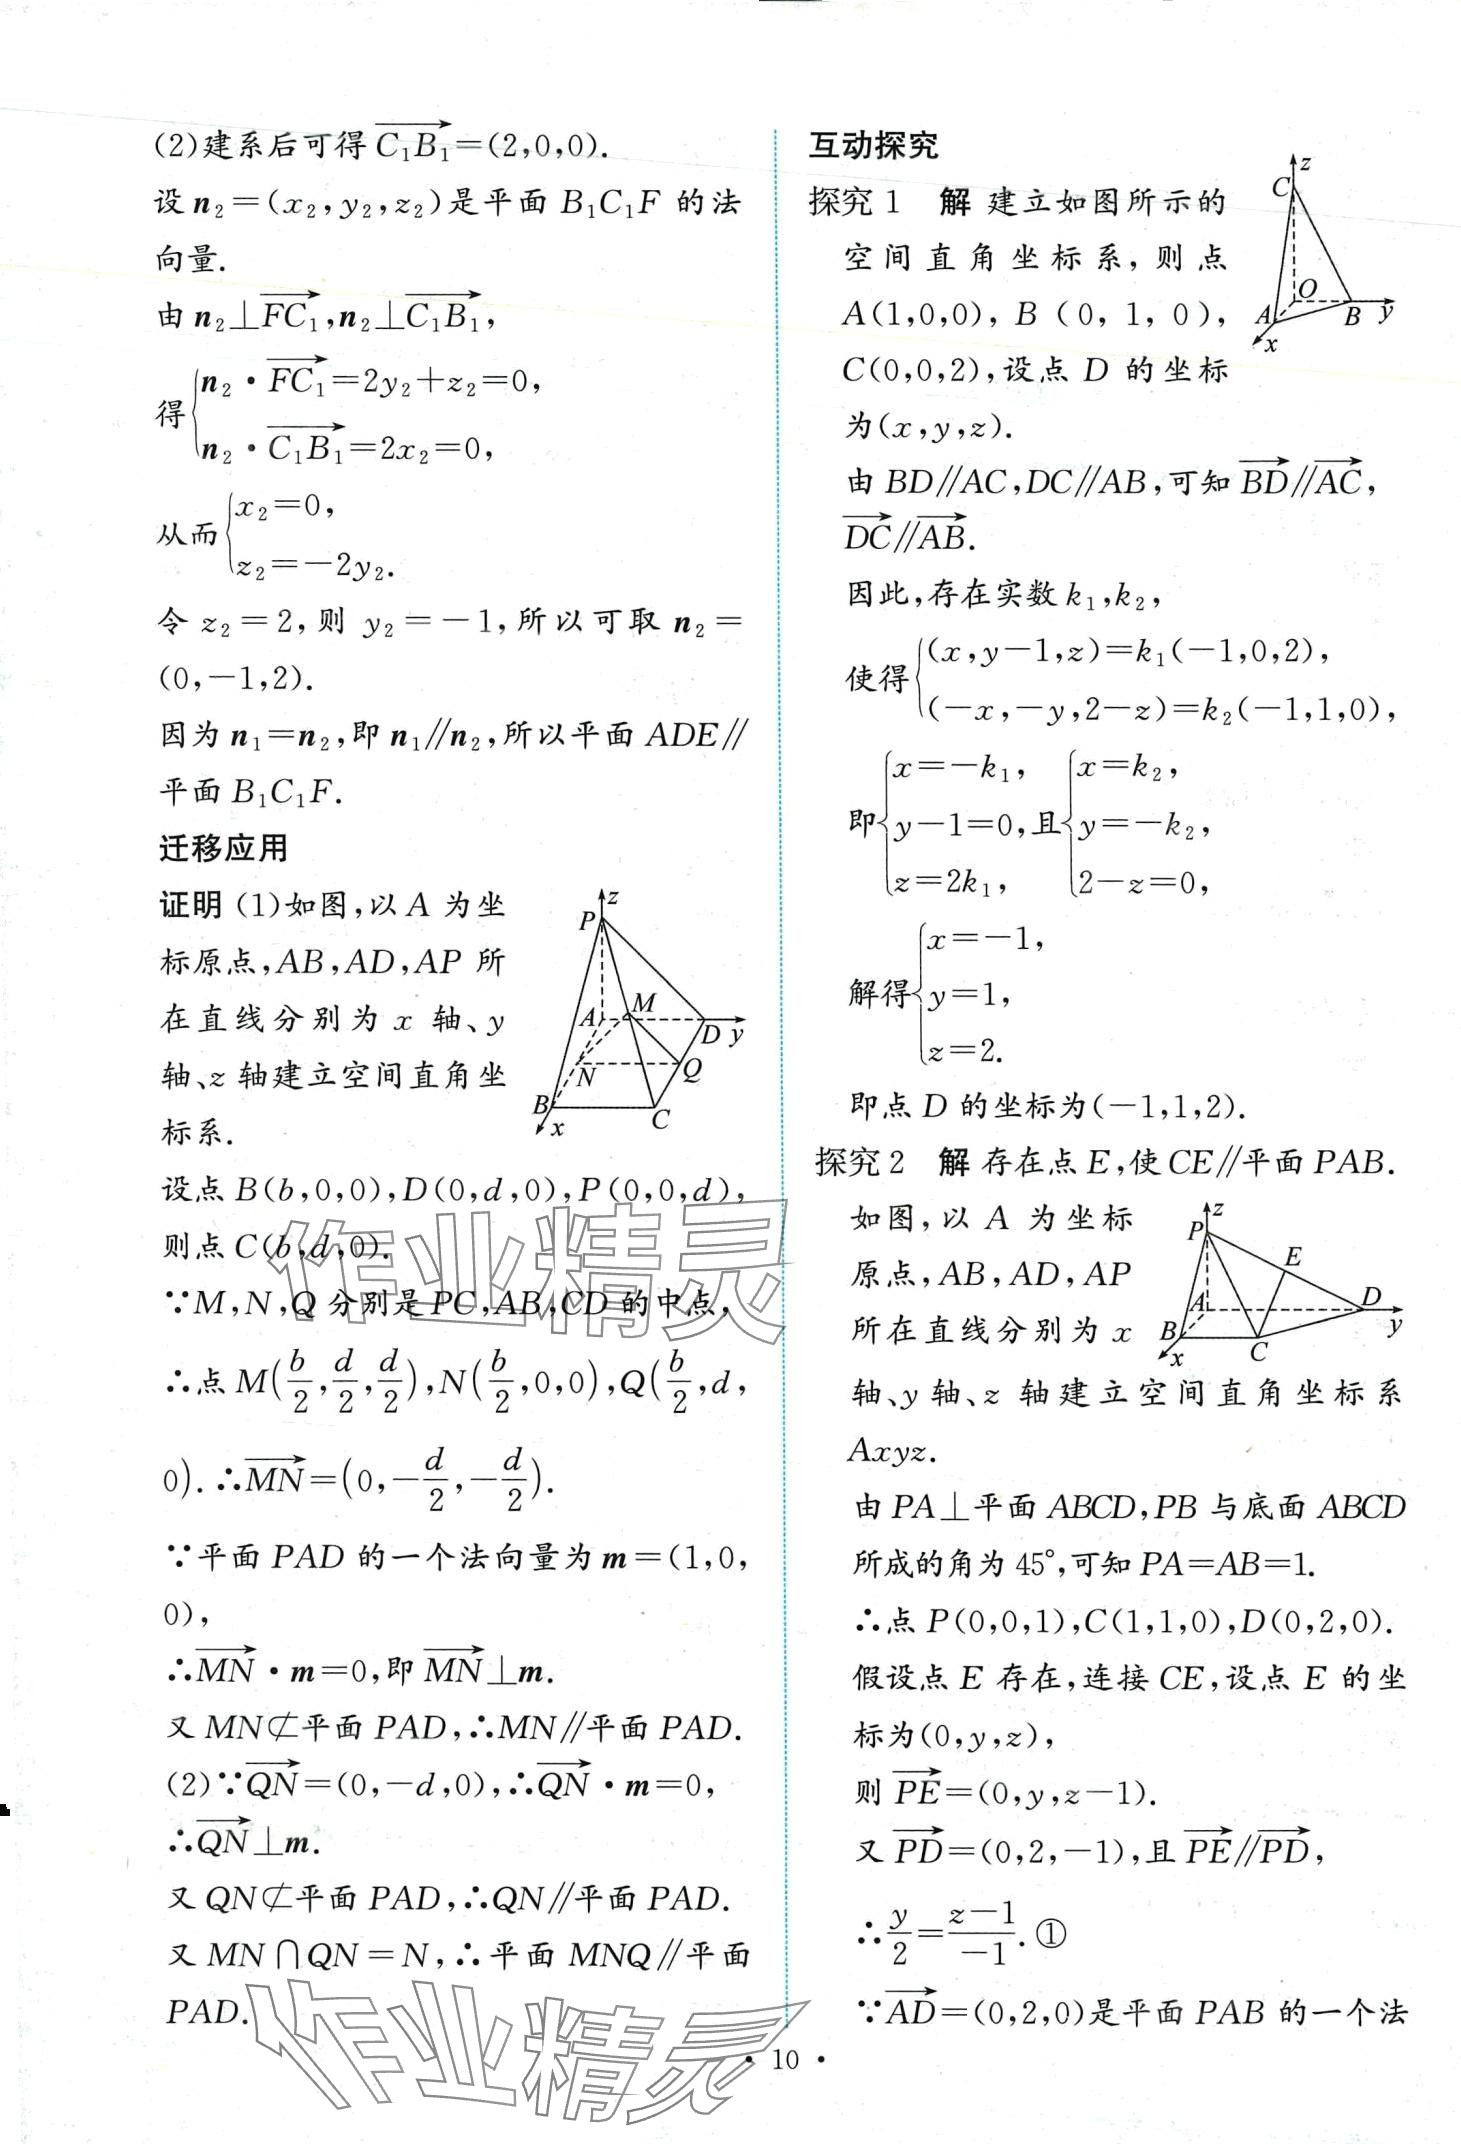 (2)建系后可得$\overrightarrow{C_1B_1}$=(2,0,0).
设 n₂=(x₂,y₂,z₂)是平面 B₁C₁F 的法
向量.
由 n₂⊥$\overrightarrow{FC_1}$,n₂⊥$\overrightarrow{C_1B_1}$,
得{n₂·$\overrightarrow{FC_1}$=2y₂+z₂=0,
n₂·$\overrightarrow{C_1B_1}$=2x₂=0,
从而{x₂=0,
z₂=-2y₂.
令 z₂=2,则 y₂=-1,所以可取 n₂=
(0,-1,2).
因为 n₁=n₂,即 n₁∥n₂,所以平面 ADE∥
平面 B₁C₁F.
迁移应用
证明 (1)如图,以 A 为坐
标原点,AB,AD,AP 所
在直线分别为 x 轴、y
轴、z 轴建立空间直角坐
标系.
z
P
M
A
D
y
N
Q
B
x
C
设点 B(b,0,0),D(0,d,0),P(0,0,d),
则点 C(b,d,0).
∵M,N,Q 分别是 PC,AB,CD 的中点,
∴点 M($\frac{b}{2}$,$\frac{d}{2}$,$\frac{d}{2}$),N($\frac{b}{2}$,0,0),Q($\frac{b}{2}$,d,
0).∴$\overrightarrow{MN}$=(0,-$\frac{d}{2}$,-$\frac{d}{2}$).
∵平面 PAD 的一个法向量为 m=(1,0,
0),
∴$\overrightarrow{MN}$·m=0,即 $\overrightarrow{MN}$⊥m.
又 MN⊄平面 PAD,∴MN∥平面 PAD.
(2)∵$\overrightarrow{QN}$=(0,-d,0),∴$\overrightarrow{QN}$·m=0,
∴$\overrightarrow{QN}$⊥m.
又 QN⊄平面 PAD,∴QN∥平面 PAD.
又 MN∩QN=N,∴平面 MNQ∥平面
PAD.
互动探究
探究1 解 建立如图所示的
空间直角坐标系,则点
A(1,0,0),B(0,1,0),
C(0,0,2),设点 D 的坐标
为(x,y,z).
z
C
O
A
B
y
x
由 BD∥AC,DC∥AB,可知 $\overrightarrow{BD}$∥$\overrightarrow{AC}$,
$\overrightarrow{DC}$∥$\overrightarrow{AB}$.
因此,存在实数 k₁,k₂,
使得{(x,y-1,z)=k₁(-1,0,2),
(-x,-y,2-z)=k₂(-1,1,0),
即{x=-k₁, y-1=0, z=2k₁, 且{x=k₂, y=-k₂, 2-z=0,
解得{x=-1,
y=1,
z=2.
即点 D 的坐标为(-1,1,2).
探究2 解 存在点 E,使 CE∥平面 PAB.
如图,以 A 为坐标
原点,AB,AD,AP
所在直线分别为 x
轴、y 轴、z 轴建立空间直角坐标系
Axyz.
z
P
E
A
D
B
x
C
y
由 PA⊥平面 ABCD,PB 与底面 ABCD
所成的角为 45°,可知 PA=AB=1.
∴点 P(0,0,1),C(1,1,0),D(0,2,0).
假设点 E 存在,连接 CE,设点 E 的坐
标为(0,y,z),
则 $\overrightarrow{PE}$=(0,y,z-1).
又 $\overrightarrow{PD}$=(0,2,-1),且 $\overrightarrow{PE}$∥$\overrightarrow{PD}$,
∴$\frac{y}{2}$=$\frac{z-1}{-1}$.①
∵$\overrightarrow{AD}$=(0,2,0)是平面 PAB 的一个法
· 10 ·
作业精灵
作业精灵